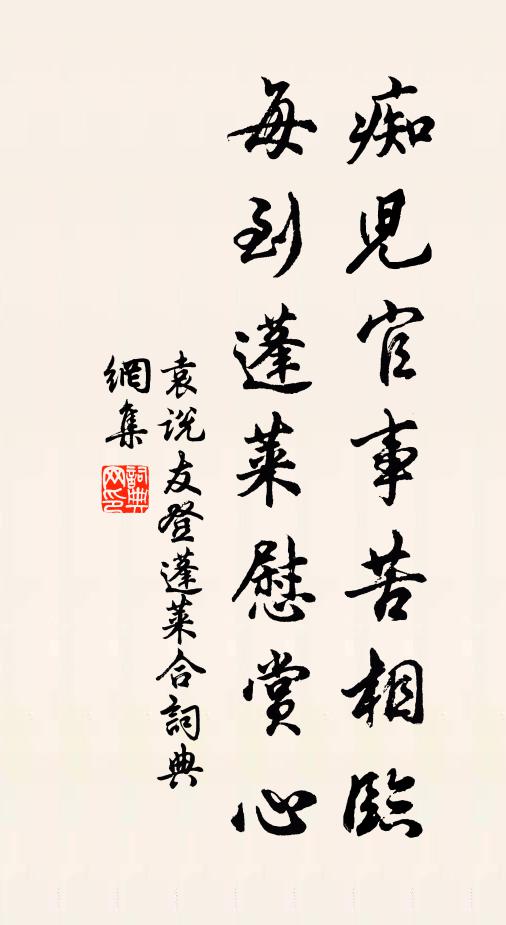 痴児官事苦相臨
每到蓬萊慰賞心
袁说友登蓬萊合詞典
網集
詞典網印